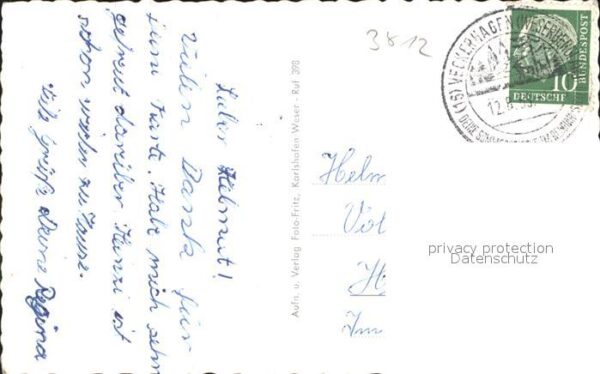 Lieber Helmut!
Vielen Dank für
Deine Karte. Habe mich sehr
gefreut darüber. Heinzi ist
schon wieder zu Hause.
Viele Grüße Deine Regina
Aufn. u. Verlag Foto-Fritz, Karlshafen Weser - Ruf 398
3812
(16) VECKERHAGEN
12.
10
DEUTSCHE
BUNDESPOST
Helm
Im
privacy protection
Datenschutz